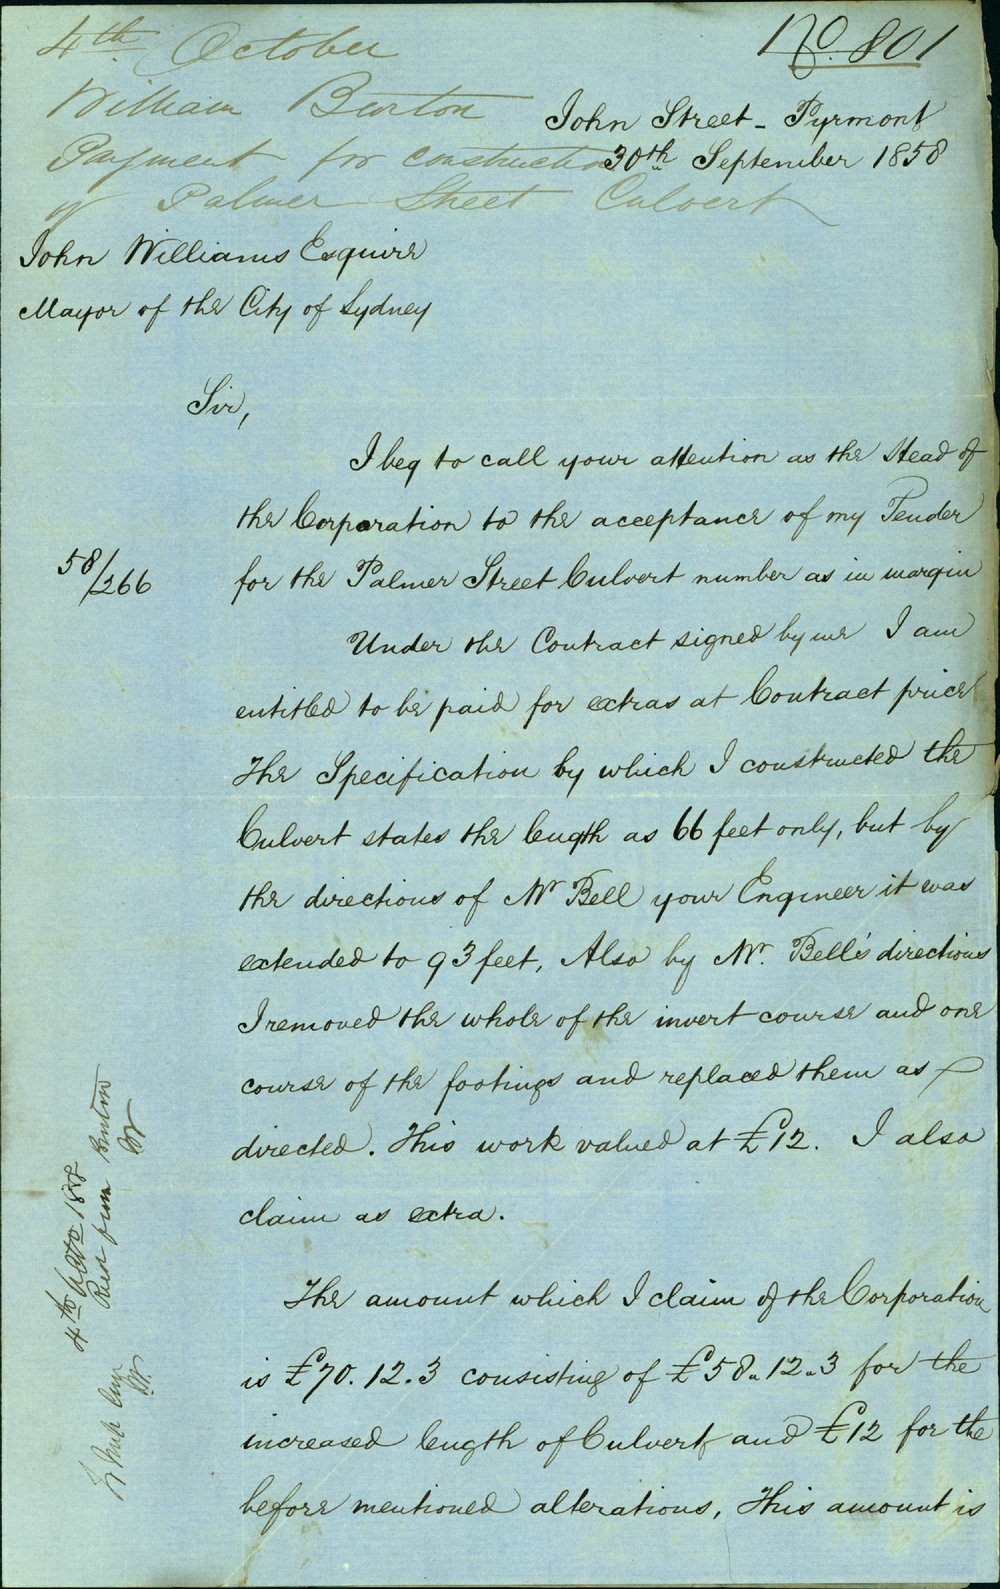 4th October
No. 801
William Burton
John Street - Pyrmont
Payment for construction
30th September 1858
of Palmer Street Culvert
John Williams Esquire
Mayor of the City of Sydney
Sir,
I beg to call your attention as the Head of
the Corporation to the acceptance of my Tender
58/266
for the Palmer Street Culvert number as in margin
Under the Contract signed by me I am
entitled to be paid for extras at Contract price
The Specification by which I constructed the
Culvert states the length as 66 feet only, but by
the directions of Mr Bell your Engineer it was
extended to 93 feet, Also by Mr. Bell's directions
I removed the whole of the invert course and one
course of the footings and replaced them as
directed. This work valued at £12. I also
claim as extra.
The amount which I claim of the Corporation
is £70.12.3 consisting of £58.12.3 for the
increased length of Culvert and £12 for the
before mentioned alterations, This amount is
4th Octr 1858
from Burton